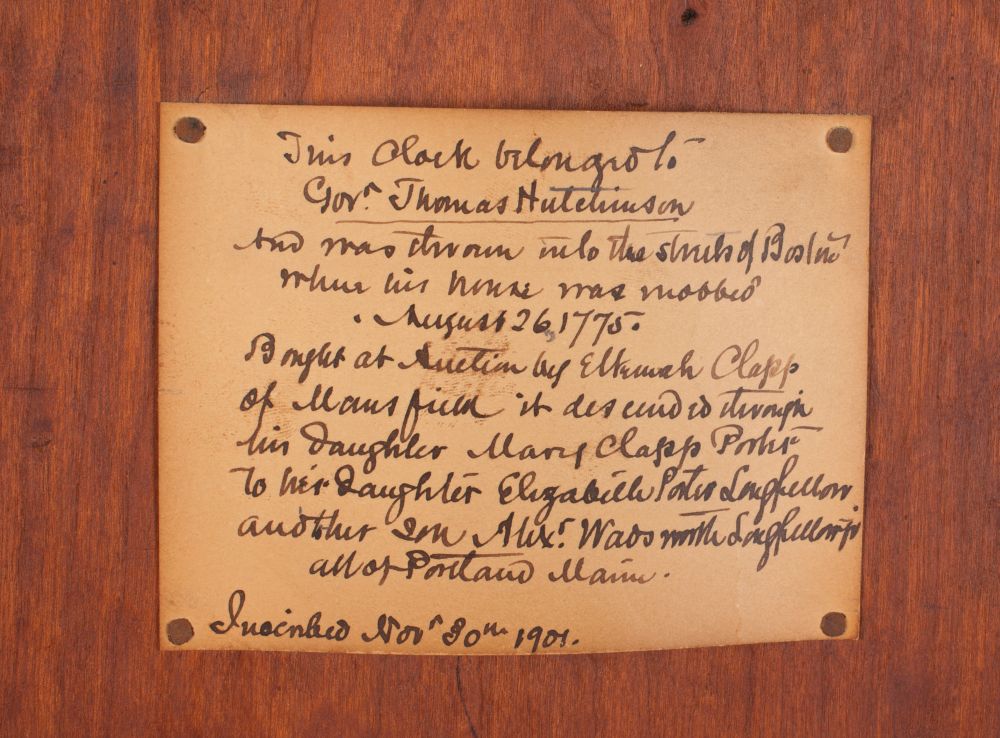 This Clock belonged to
Govr. Thomas Hutchinson
And was thrown into the streets of Boston
when his house was mobbed
August 26, 1775.
Bought at Auction by Elkanah Clapp
of Mansfield it descended through
his Daughter Mary Clapp Porter
To her Daughter Elizabeth Porter Longfellow
and her son Alexr. Wadsworth Longfellow jr
all of Portland Maine.
Inscribed Novr 30th 1901.